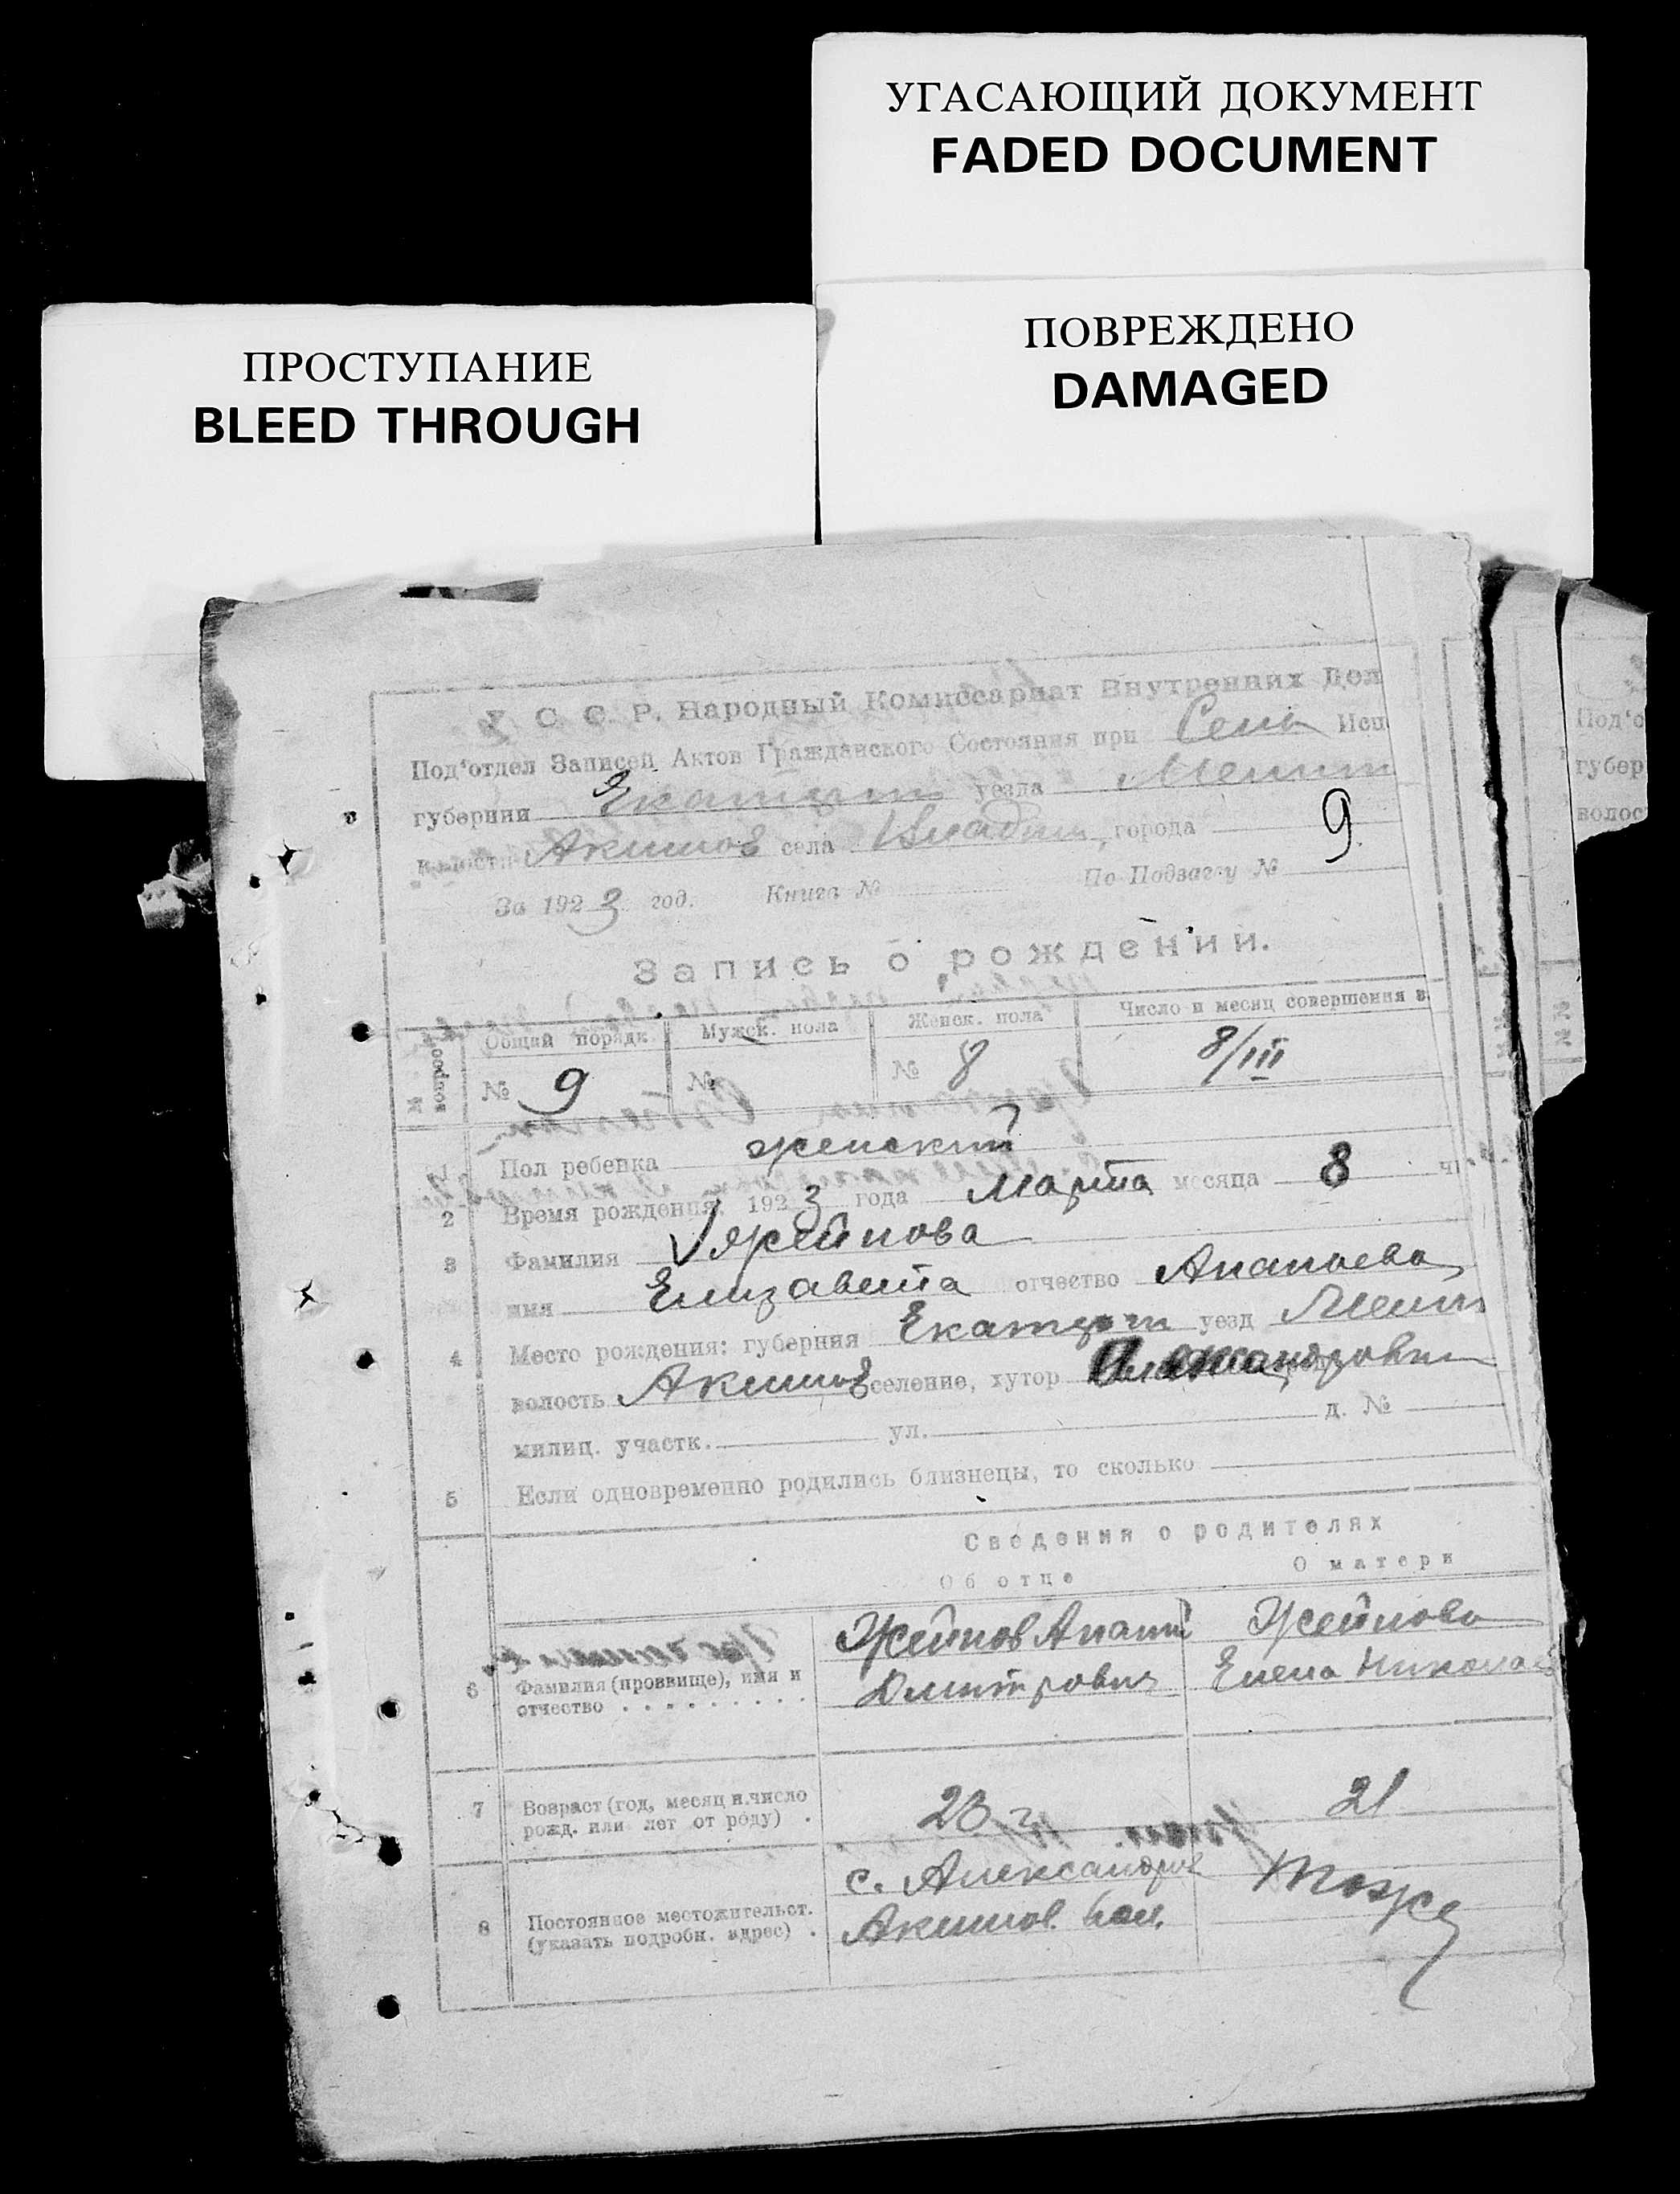 УГАСАЮЩИЙ ДОКУМЕНТ
FADED DOCUMENT
ПОВРЕЖДЕНО
DAMAGED
ПРОСТУПАНИЕ
BLEED THROUGH
У. С. С. Р. Народный Комиссариат Внутренних Дел
Под'отдел Записей Актов Гражданского Состояния при Сель Исп
губернии уезда Мелит
Акимов села города
За 1923 год. Книга № По Подзагсу № 9
Запись о рождении.
№ вопросов Общий порядк. Мужск. пола Женск. пола Число и месяц совершения
№ 9 № № 8 8/III
1 Пол ребенка женский
2 Время рождения: 1923 года Марта месяца 8 чи
3 Фамилия Жейнова
имя Елизавета отчество
4 Место рождения: губерния уезд Мелит
волость Акимов селение, хутор
милиц. участк. ул. д. №
5 Если одновременно родились близнецы, то сколько
Сведения о родителях
Об отце О матери
6 Фамилия (прозвище), имя и отчество Жейнов Дмитрович Жейнова Елена Никола
7 Возраст (год, месяц и число рожд. или лет от роду) 23 г. 21
8 Постоянное местожительст. (указать подробн. адрес) с. Александров Акимов. вол. тоже
Под'о
губер
волос